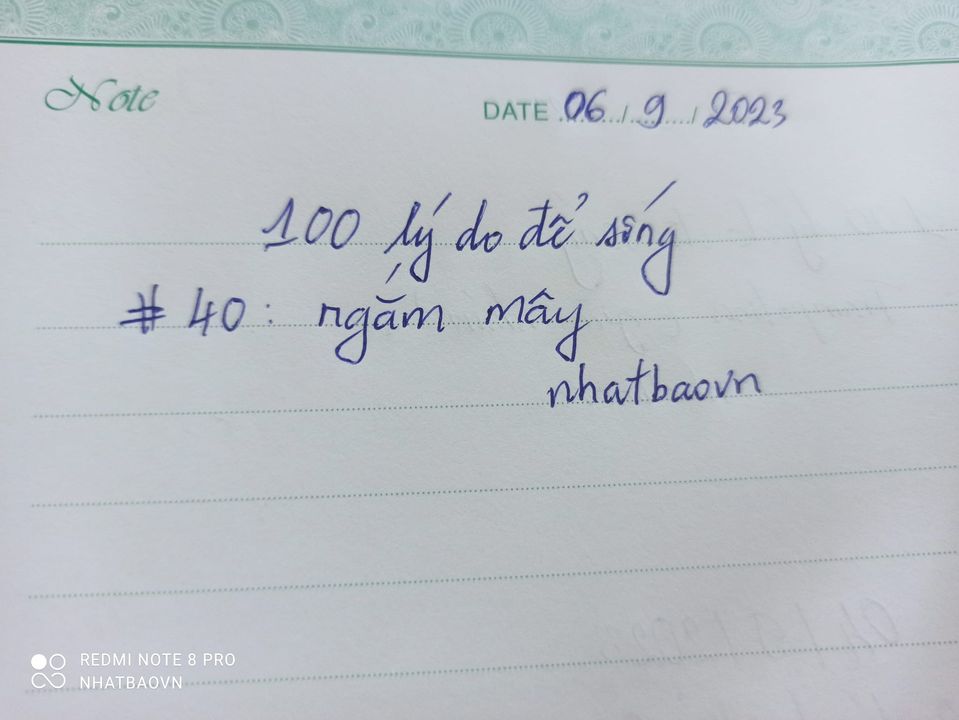 Note
DATE 06/9/2023
100 lý do để sống
#40: ngắm mây
nhatbaovn
REDMI NOTE 8 PRO
NHATBAOVN